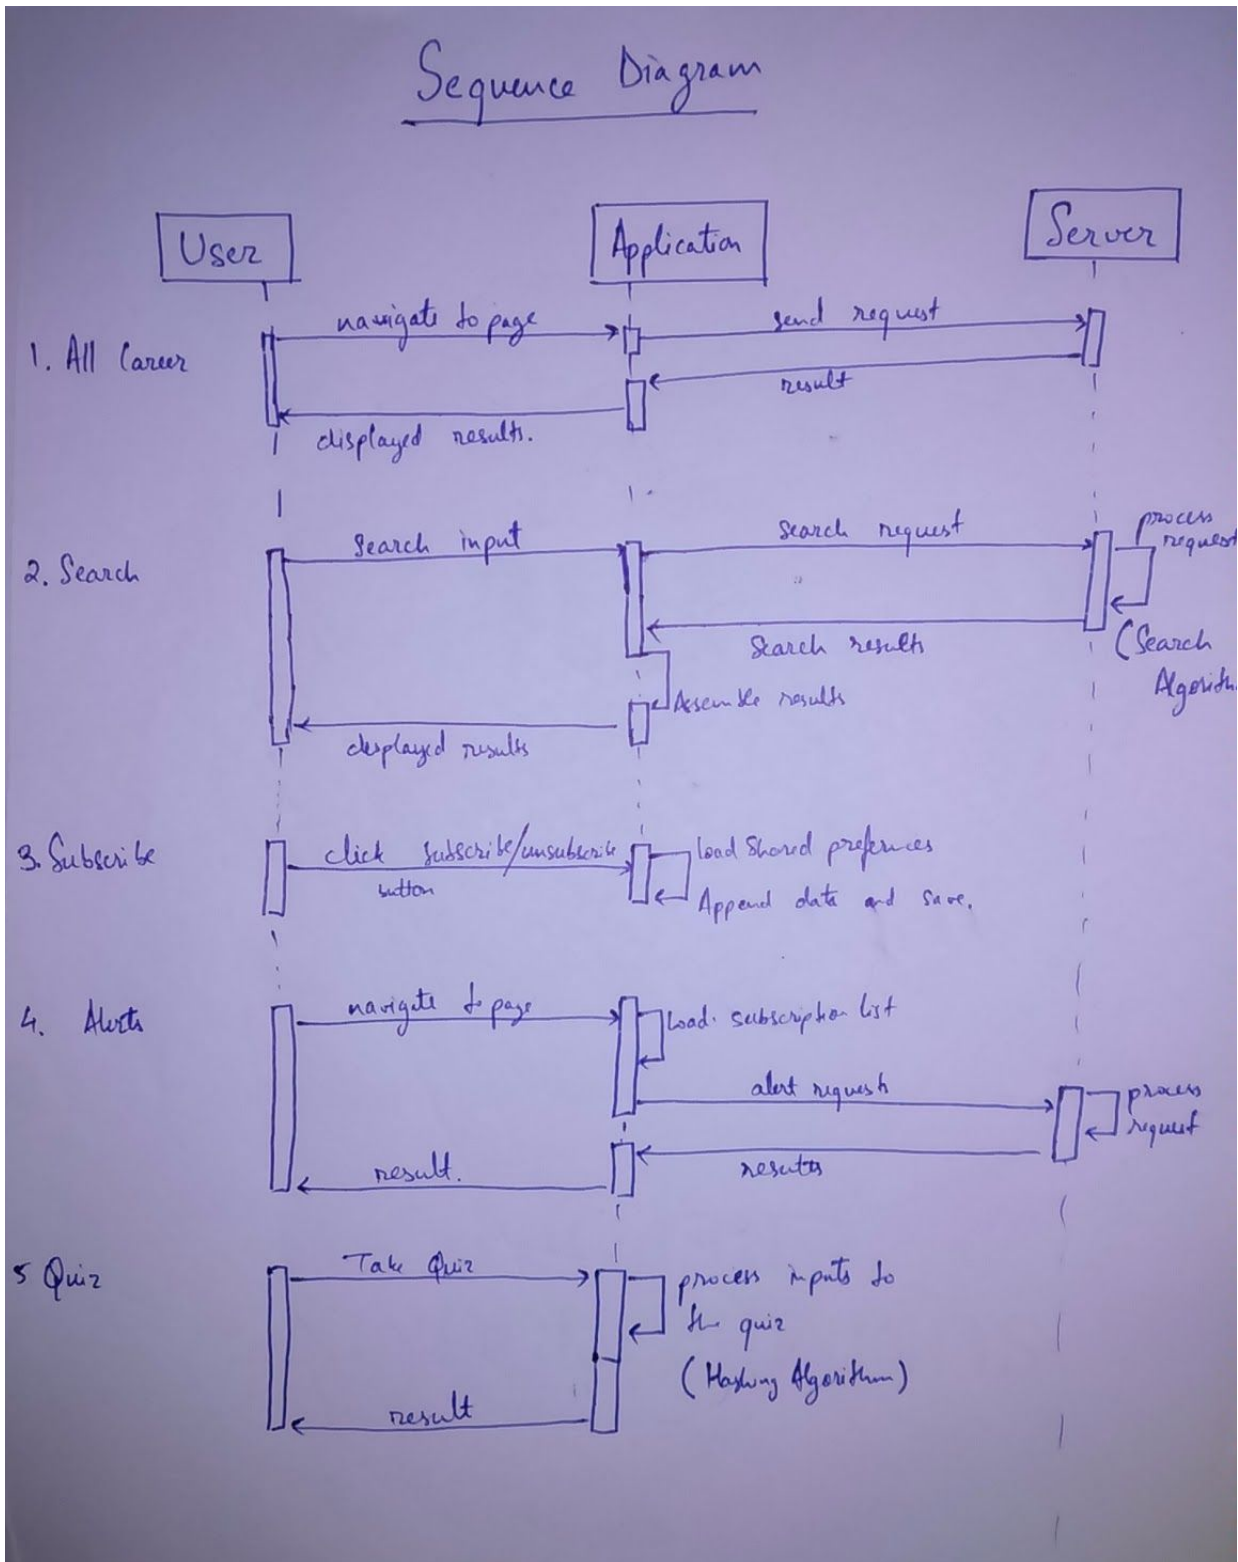 Sequence Diagram
User
Application
Server
1. All Career
navigate to page
send request
result
displayed results.
2. Search
Search input
Search request
process
request
Search results
(Search
Algorith
Assemble results
displayed results
3. Subscribe
click subscribe/unsubscribe
button
load Shared prefernces
Append data and save.
4. Alerts
navigate to page
Load subscription list
alert request
process
request
results
result.
5 Quiz
Take Quiz
process inputs to
the quiz
(Hashing Algorithm)
result